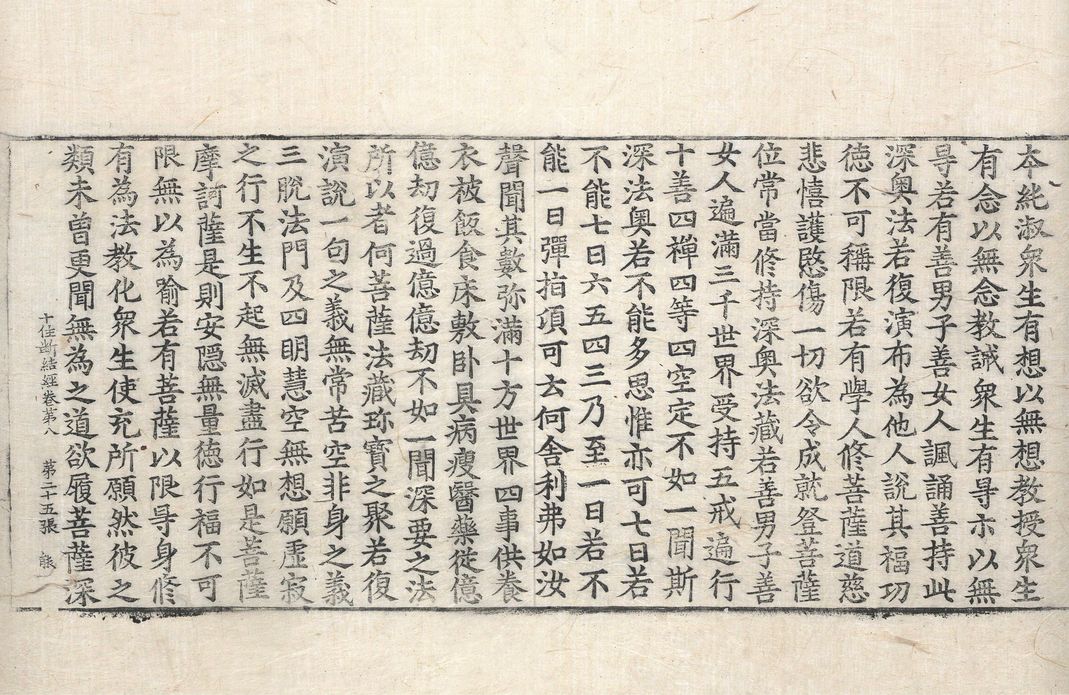 本純淑衆生有想以無想教授衆生
有念以無念教誡衆生有㝵亦以無
㝵若有善男子善女人諷誦善持此
深奥法若復演布為他人說其福功
徳不可稱限若有學人修菩薩道慈
悲憘護愍傷一切欲令成就登菩薩
位常當修持深奥法藏若善男子善
女人遍滿三千世界受持五戒遍行
十善四禪四等四空定不如一聞斯
深法奥若不能多思惟亦可七日若
不能七日六五四三乃至一日若不
能一日彈指項可云何舍利弗如汝
聲聞其數弥滿十方世界四事供養
衣被飯食床敷卧具病瘦醫藥從億
億劫復過億億劫不如一聞深要之法
所以者何菩薩法藏珎寶之聚若復
演說一句之義無常苦空非身之義
三脫法門及四明慧空無想願虛寂
之行不生不起無滅盡行如是菩薩
摩訶薩是則安隠無量徳行福不可
限無以為喻若有菩薩以限㝵身修
有為法教化衆生使充所願然彼之
類未曾更聞無為之道欲履菩薩深
十住斷結經卷第八 第二十五張